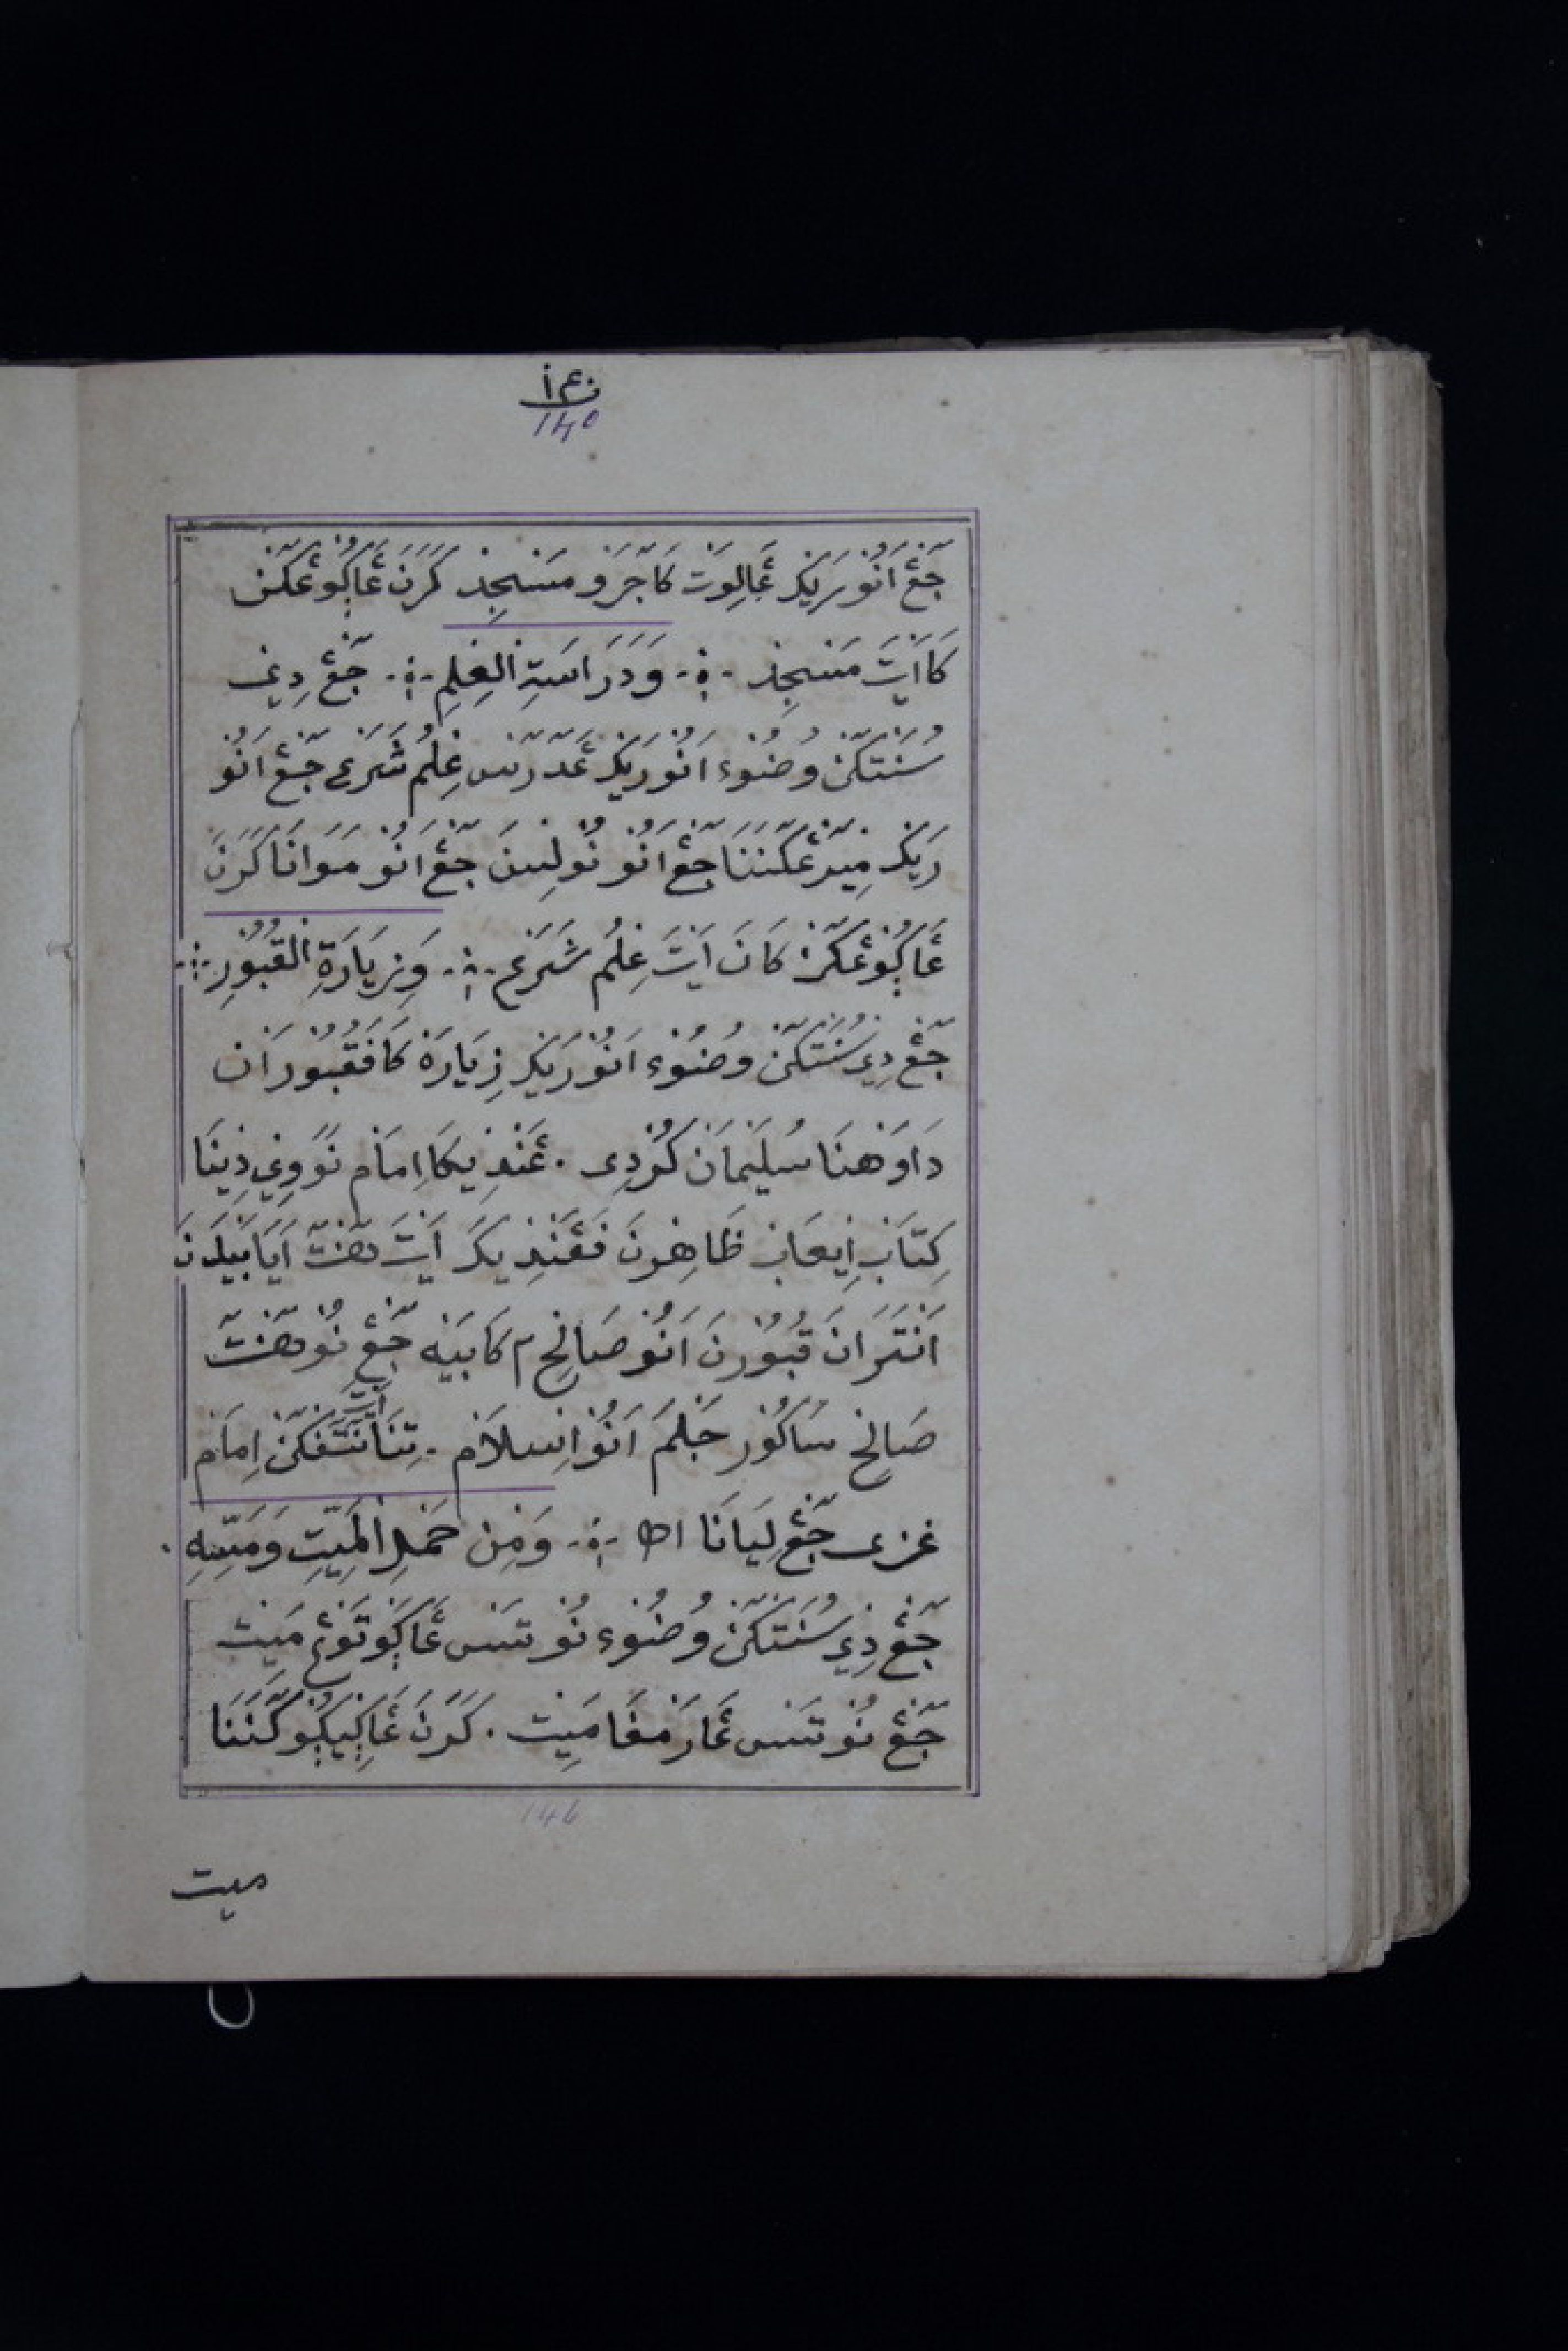 ١٤٥
140
جَڠَ اَنُوْ رَيَكَ عَالِوَتْ كَاجَرَ و مَسْجِدْ كَرَنَ عَاكُوْعَكَنْ
كَاأَيْتَ مَسْجِدْ وَدَرَاسَةِ الْعِلْمِ جَڠَ دِيْ
سُنَتَكَنْ وُضُوْء اَنُوْ رَيَكَ عَدَرَسْ عِلْمُ شَرَعْ جَڠَ اَنُوْ
رَيَكَ مِيْرَعَكَنَنَا جَڠَ اَنُوْ نُوْلِسَ جَڠَ اَنُوْ مَوَانَا كَرَنَ
عَاكُوْعَكَنْ كَانَ اَيْتَ عِلْمُ شَرَعْ وَزِيَارَةِ الْقُبُوْرِ
جَڠَ دِيْ سُنَتَكَنْ وُضُوْء اَنُوْ رَيَكَ زِيَارَةْ كَافَقُبُوْرَانْ
دَاوَهْنَا سُلَيْمَانْ كُرْدِى عَنْدِيْكَا اِمَامْ نَوَوِيْ دِيْنَا
كِتَابْ اِيْعَابْ ظَاهِرْنَ فَڠَنْدِيْكَ اَيْتَ اَيَا بَيْدَنَ
اَنْتَرَانَ قُبُوْرْنَ اَنُوْ صَالِحْ م كَابَيْهْ جَڠَ نُوْ
صَالِحْ سَاكُوْرْ جَلْمَ اَنُوْ اِسْلَامْ تِنَانَتَفَكَنْ اِمَامْ
غزى جَڠَ لِيَانَا اهـ وَمِنْ حَمْلِ الْمَيِّتِ وَمَسِّهِ
جَڠَ دِيْ سُنَتَكَنْ وُضُوْء نُوْ تَسْ عَاكَوْتَوْڠْ مَيِتْ
جَڠَ نُوْ تَسْ عَارَمْفَا مَيِتْ كَرَنَ عَاكِيْكُوْكَنَنَا
146
ميت